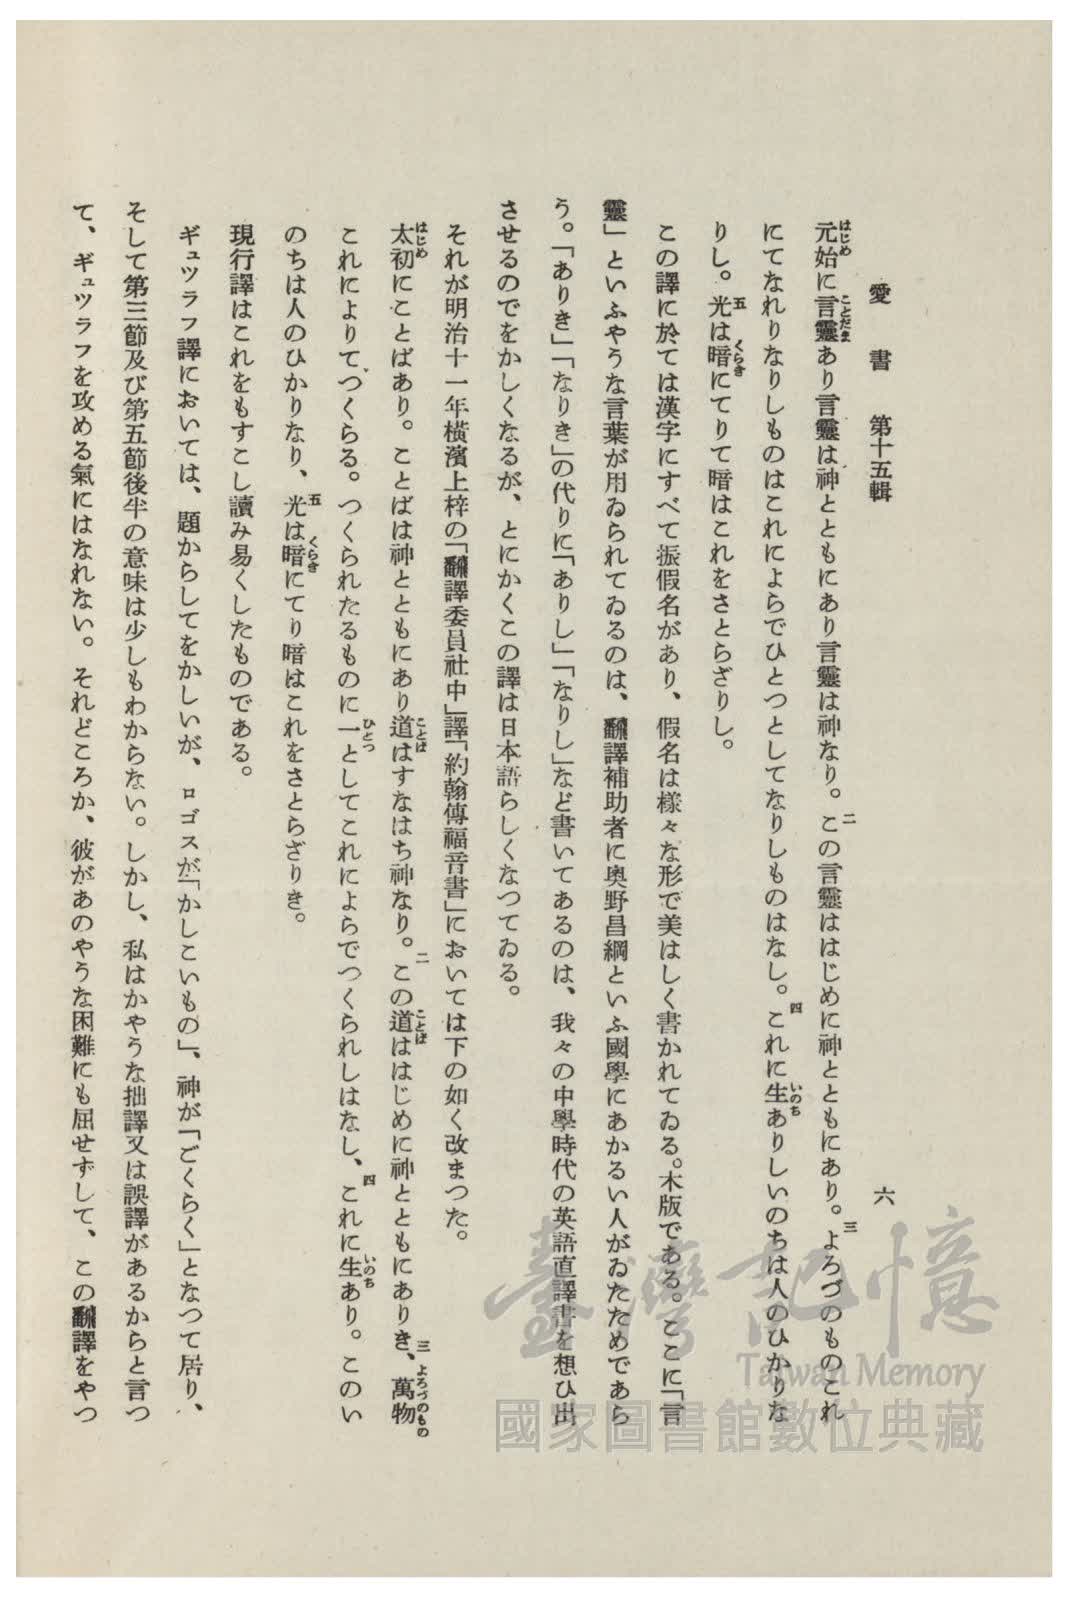 愛書 第十五輯
六
元始に言靈あり言靈は神とともにあり言靈は神なり。二この言靈ははじめに神とともにあり。三よろづのものこれ
はじめ ことだま
にてなれりなりしものはこれによらでひとつとしてなりしものはなし。四これに生ありしいのちは人のひかりな
いのち
りし。五光は暗にてりて暗はこれをさとらざりし。
くらき
この譯に於ては漢字にすべて振假名があり、假名は樣々な形で美はしく書かれてゐる。木版である。ここに「言
靈」といふやうな言葉が用ゐられてゐるのは、飜譯補助者に奥野昌綱といふ國學にあかるい人がゐたためであら
う。「ありき」「なりき」の代りに「ありし」「なりし」など書いてあるのは、我々の中學時代の英語直譯書を想ひ出
させるのでをかしくなるが、とにかくこの譯は日本語らしくなつてゐる。
それが明治十一年橫濱上梓の「飜譯委員社中」譯「約翰傳福音書」においては下の如く改まつた。
太初にことばあり。ことばは神とともにあり道はすなはち神なり。二この道ははじめに神とともにありき、三萬物
はじめ ことば ことば よろづのもの
これによりてつくらる。つくられたるものに一としてこれによらでつくられしはなし、四これに生あり。このい
ひとつ いのち
のちは人のひかりなり、五光は暗にてり暗はこれをさとらざりき。
くらき
現行譯はこれをもすこし讀み易くしたものである。
ギュツラフ譯においては、題からしてをかしいが、ロゴスが「かしこいもの」、神が「ごくらく」となつて居り、
そして第三節及び第五節後半の意味は少しもわからない。しかし、私はかやうな拙譯又は誤譯があるからと言つ
て、ギュツラフを攻める氣にはなれない。それどころか、彼があのやうな困難にも屈せずして、この飜譯をやつ
臺灣記憶
Taiwan Memory
國家圖書館數位典藏